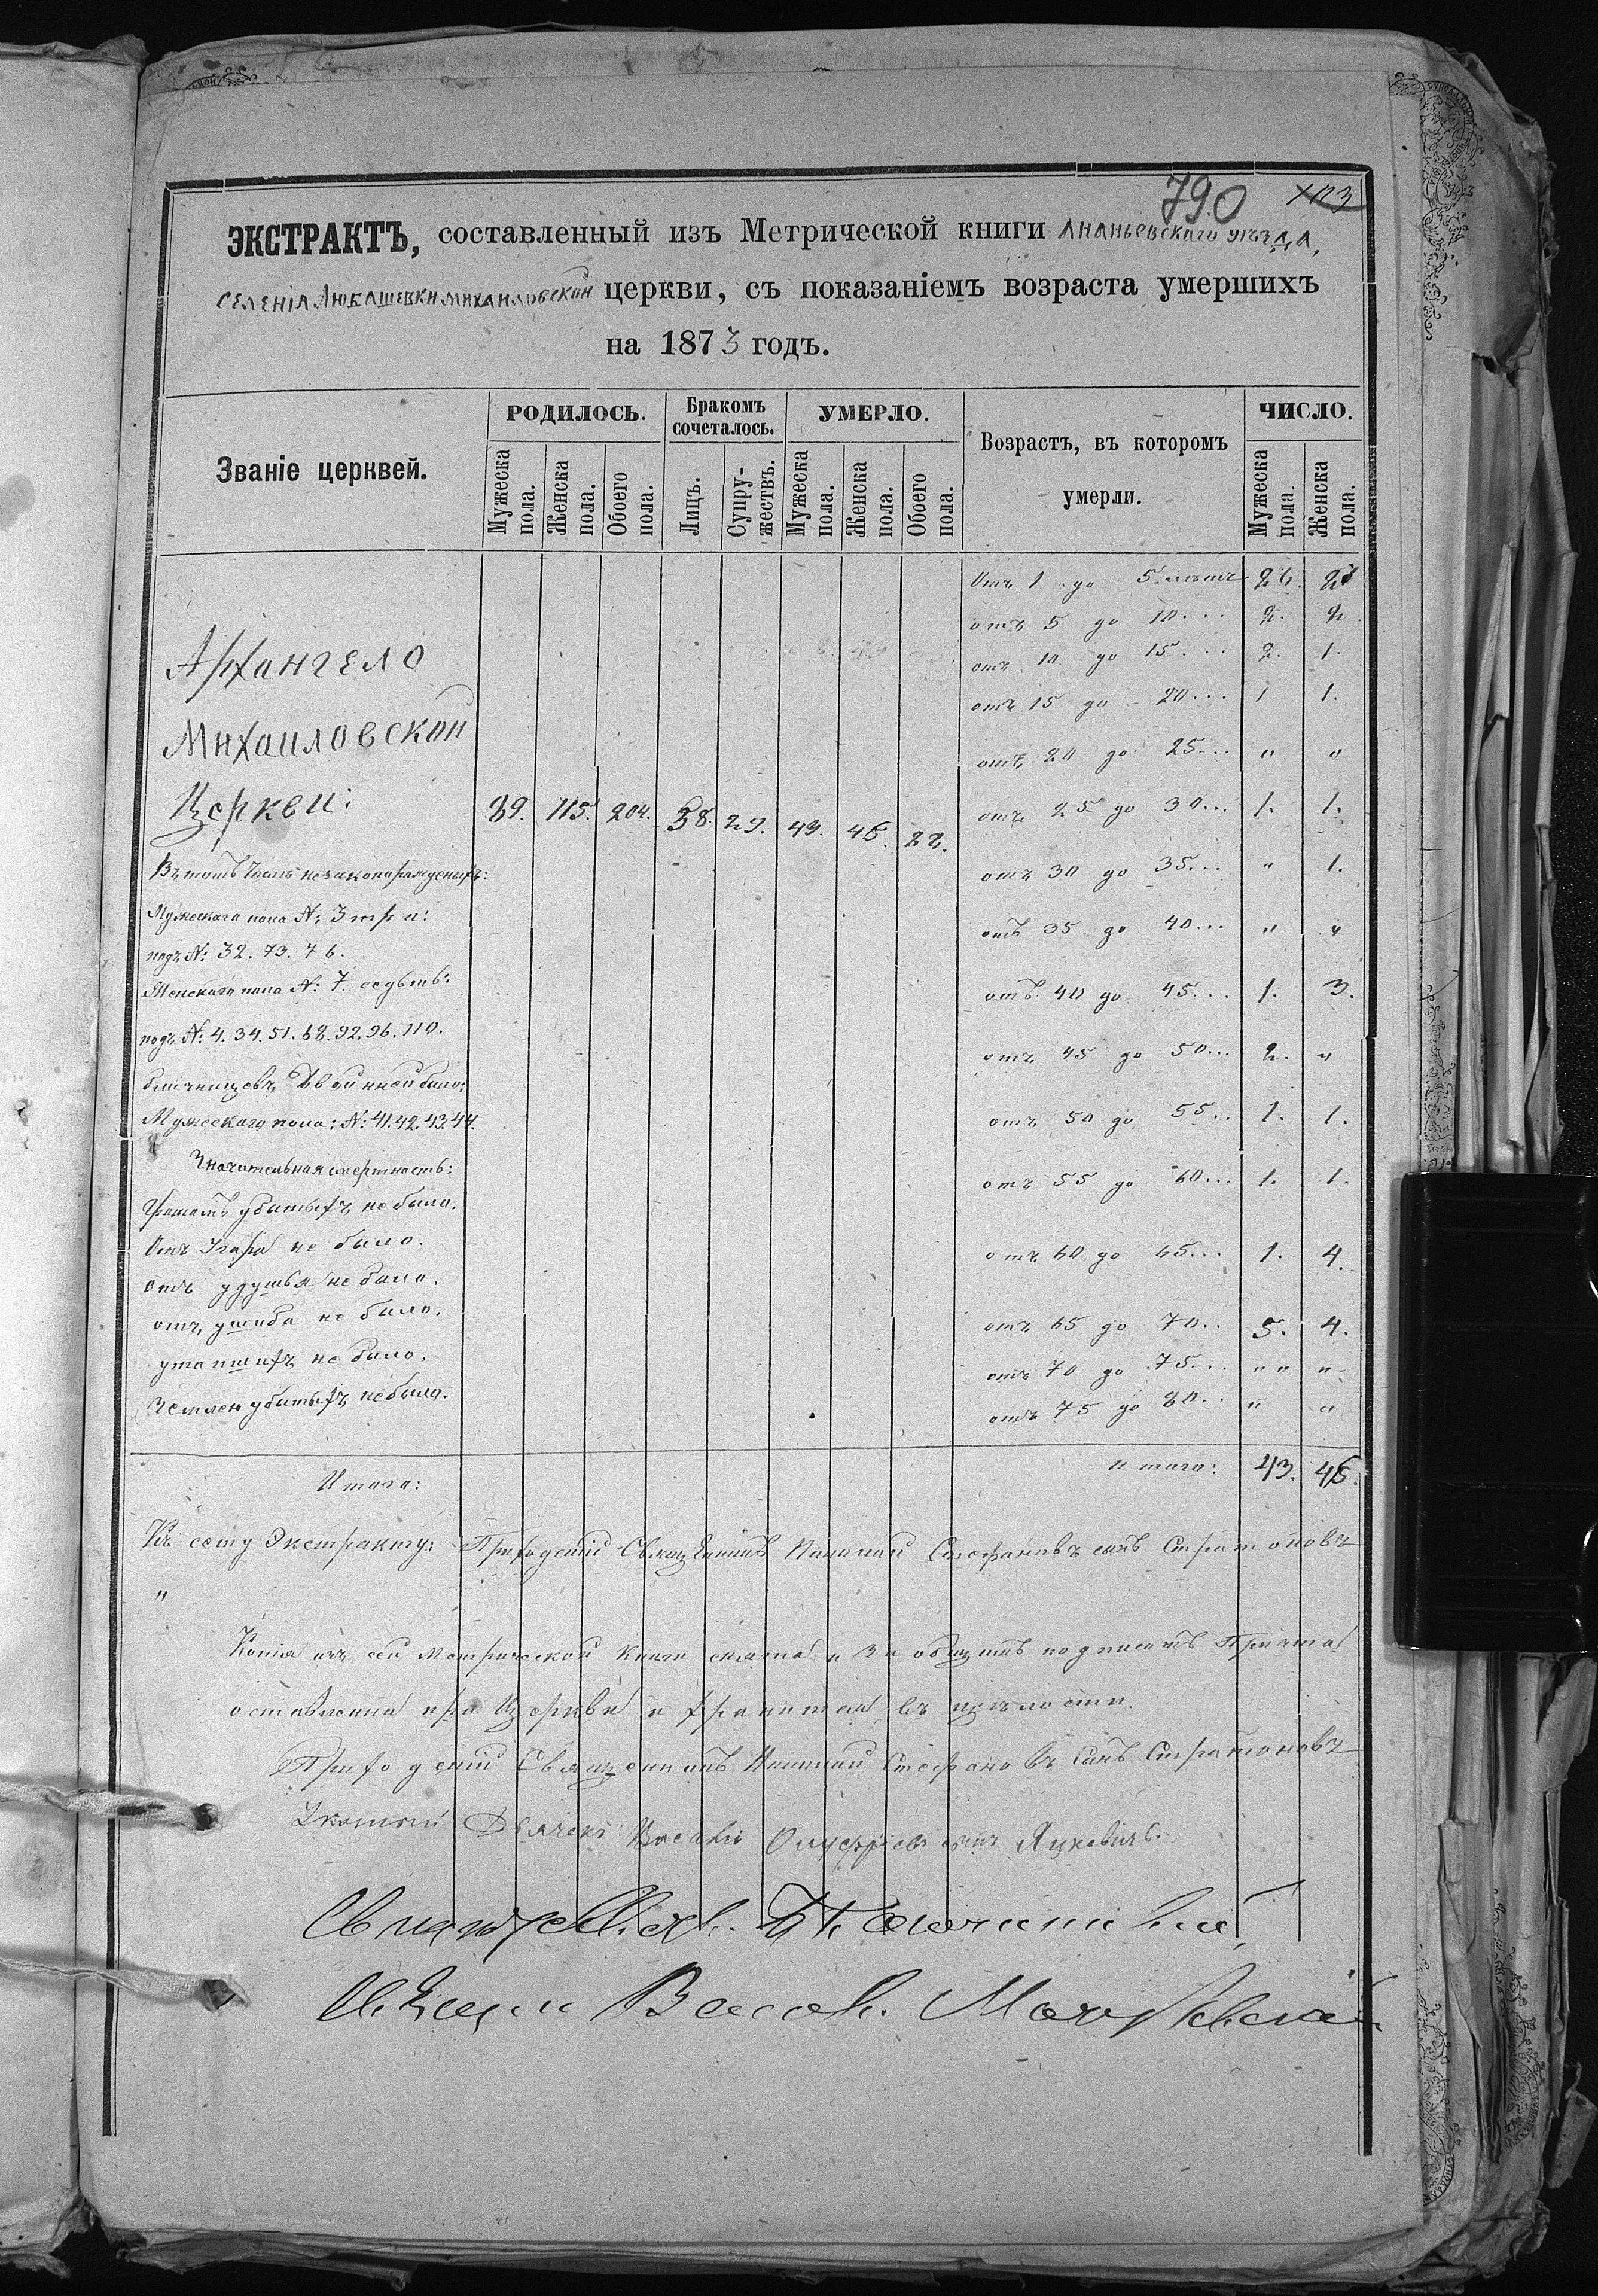 790
ЭКСТРАКТЪ, составленный изъ Метрической книги Ананьевскаго уѣзда,
селенія Любашевки Михаиловской церкви, съ показаніемъ возраста умершихъ
на 1873 годъ.
Званіе церквей.
РОДИЛОСЬ.
Бракомъ сочеталось.
УМЕРЛО.
Возрастъ, въ которомъ умерли.
ЧИСЛО.
Мужеска пола. Женска пола. Обоего пола. Лицъ. Супружествъ. Мужеска пола. Женска пола. Обоего пола. Мужеска пола. Женска пола.
Архангело
Михаиловской
Церкви: 89. 115. 204. 58. 29. 43. 45. 88.
Въ томъ числѣ незаконорожденыхъ:
Мужескаго пола №: 3 три:
подъ №: 32. 73. 76.
Женскаго пола №: 7 седьмь:
подъ №: 4. 34. 51. 68. 92. 96. 110.
близнецовъ Двойней было:
Мужескаго пола: №: 41. 42. 43. 44.
Значительная смертность:
Громомъ убитыхъ не было.
Отъ Угара не было.
отъ удушья не было.
отъ ушиба не было.
утопшихъ не было.
Землею убитыхъ не было.
Отъ 1 до 5 лѣтъ 26. 27
отъ 5 до 10... 2. 2.
отъ 10 до 15... 2. 1.
отъ 15 до 20... 1 1.
отъ 20 до 25... " "
отъ 25 до 30... 1. 1.
отъ 30 до 35... " 1.
отъ 35 до 40... " "
отъ 40 до 45... 1. 3.
отъ 45 до 50... 2. "
отъ 50 до 55.. 1. 1.
отъ 55 до 60... 1. 1.
отъ 60 до 65... 1. 4.
отъ 65 до 70.. 5. 4.
отъ 70 до 75... " " "
отъ 75 до 80.. " "
Итого: итого: 43. 45.
Къ сему Экстракту: Приходскій Священникъ Стефановъ сынъ Стратоновъ
"
Копія изъ сей метрической книги снята и за общимъ подписомъ Причта
оставлена при Церкви и хранится въ цѣлости.
Приходскій Священникъ Стефановъ сынъ Стратоновъ
Дьячекъ Василій Онуфріевъ сынъ Яцкевичъ.